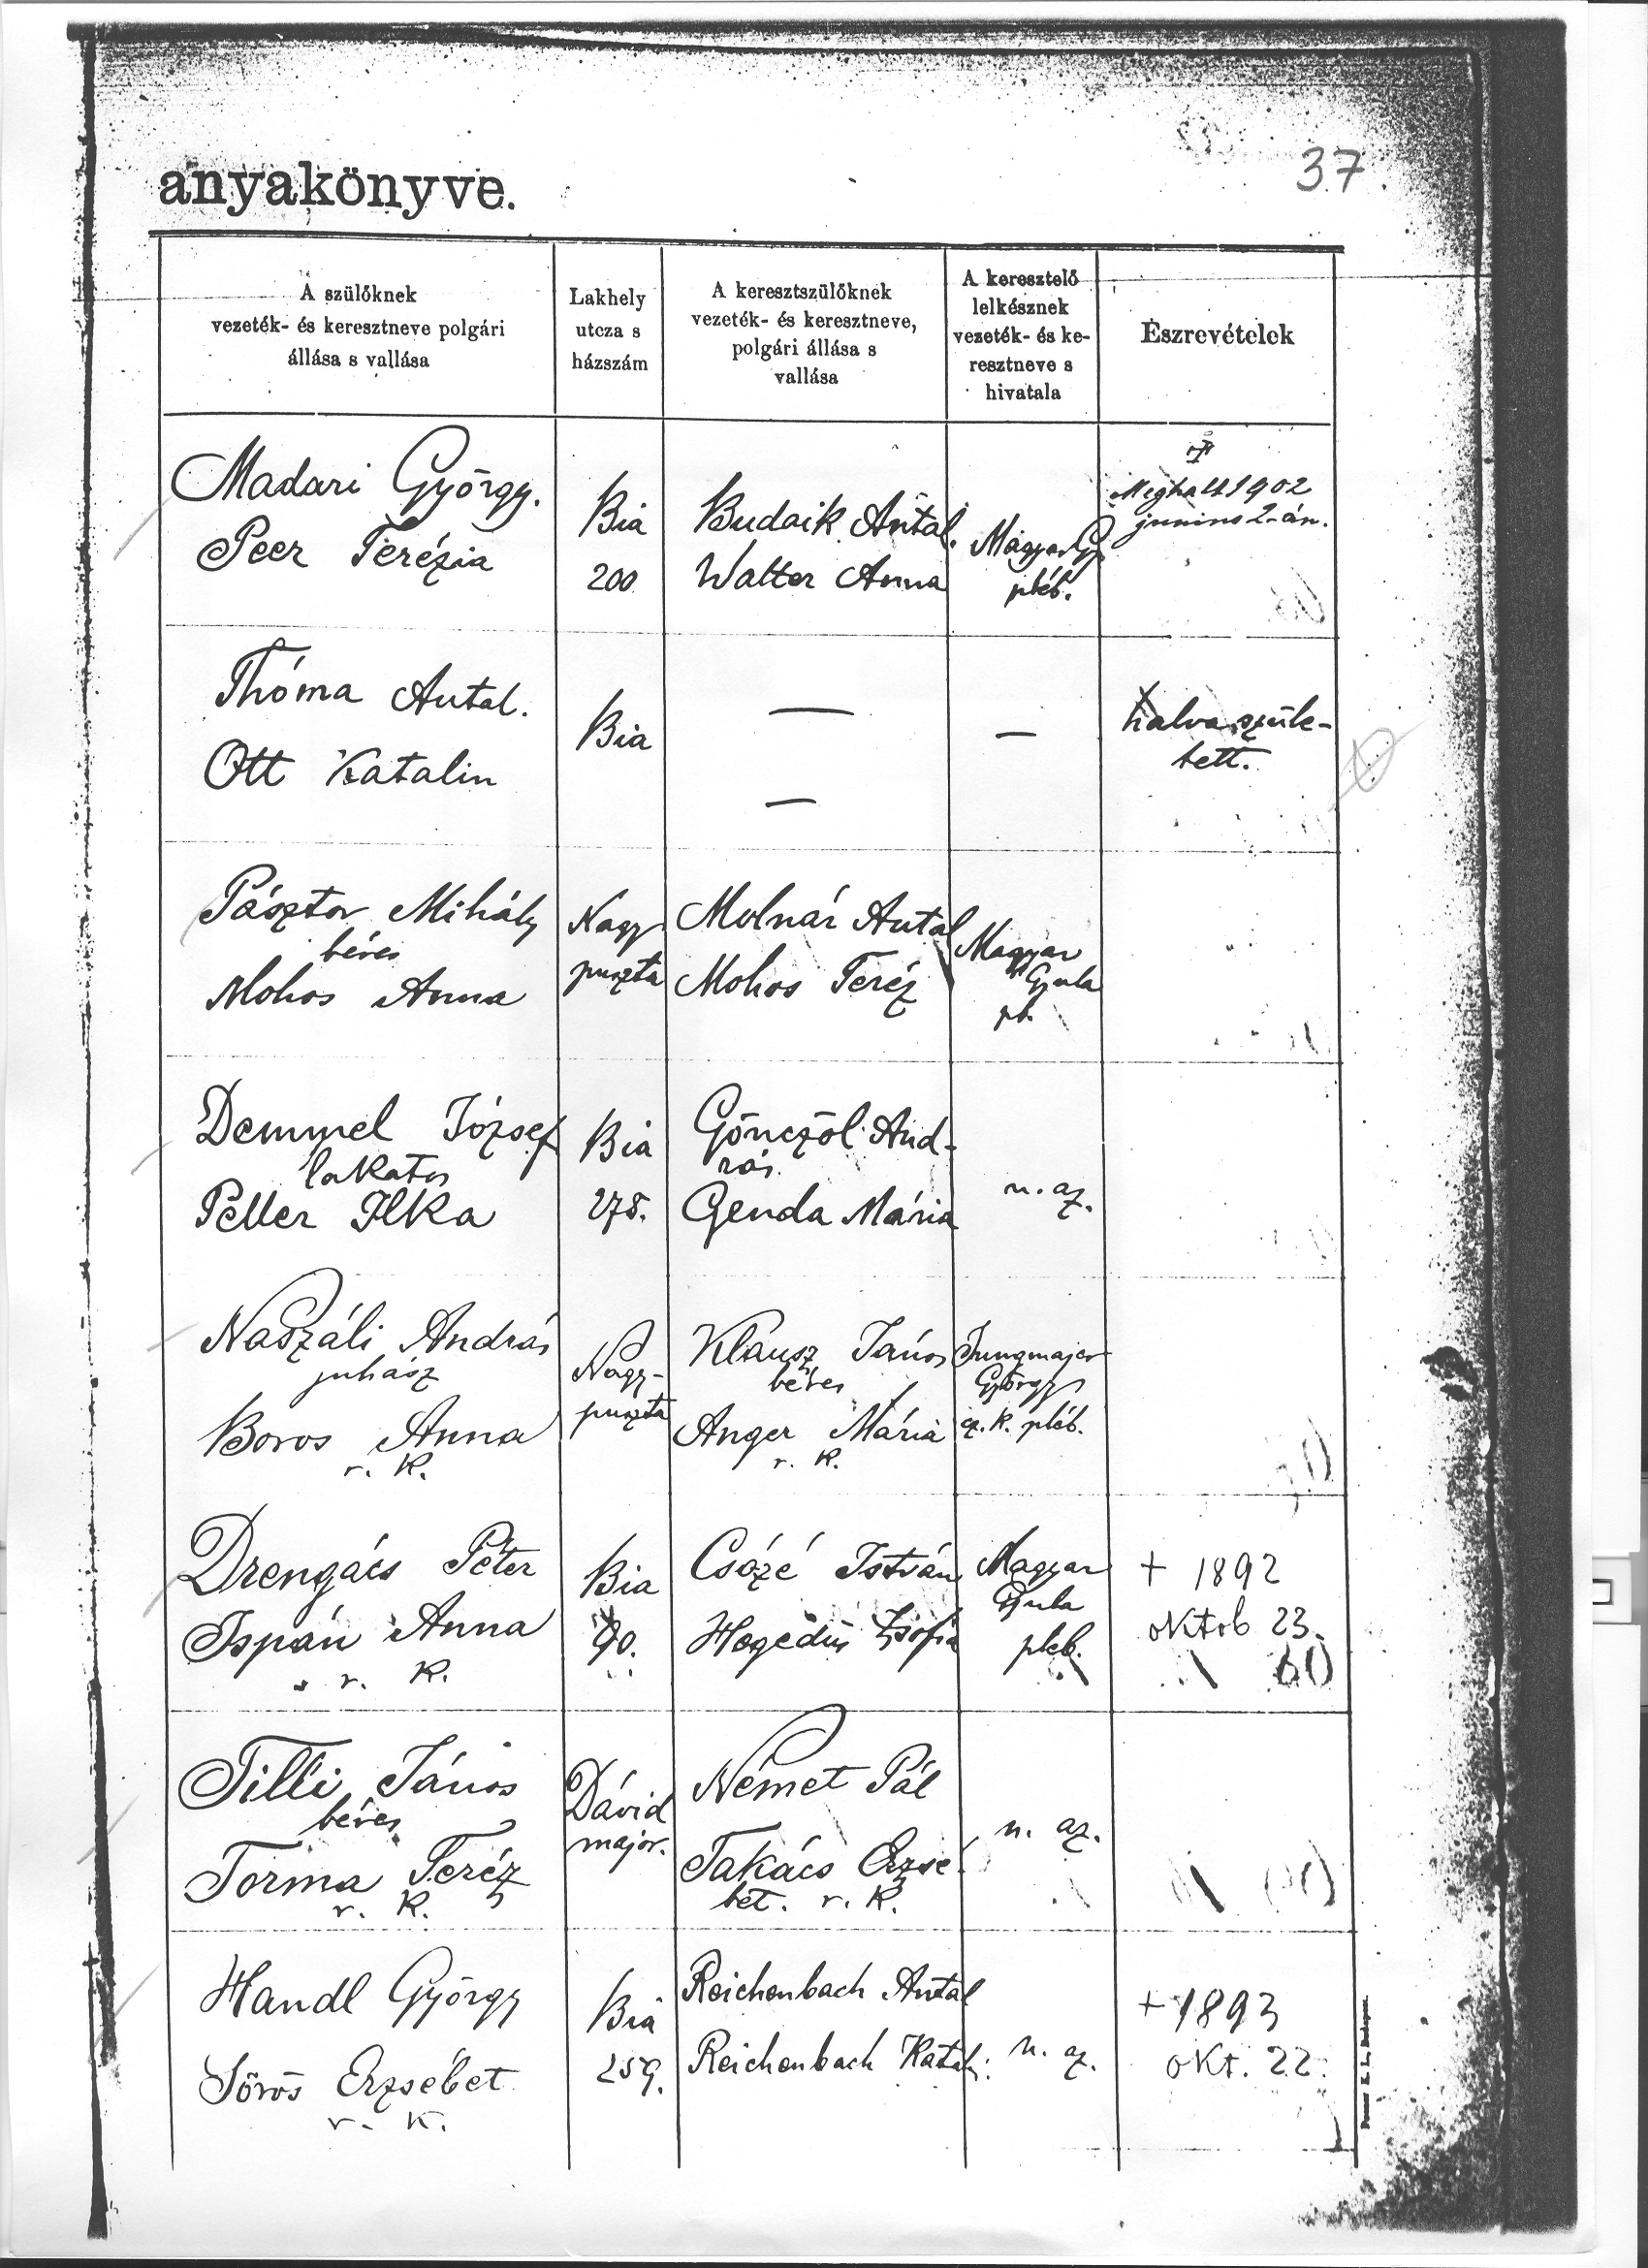 37.
anyakönyve.
A szülőknek
vezeték- és keresztneve polgári
állása s vallása
Lakhely
utcza s
házszám
A keresztszülőknek
vezeték- és keresztneve,
polgári állása s
vallása
A keresztelő
lelkésznek
vezeték- és ke-
resztneve s
hivatala
Észrevételek
Madari György.
Peer Terézia
Bia
200
Budaik Antal.
Walter Anna
Magyar Gy
pléb.
Meghalt 1902
junius 2-án.
Thóma Antal.
Ott Katalin
Bia
—
—
—
halva szüle-
tett.
Pásztor Mihály
béres
Mohos Anna
Nagy
puszta
Molnár Antal
Mohos Teréz
Magyar
Gyula
pb.
Demmel József
lakatos
Peller Ilka
Bia
278.
Gönczöl And-
rás
Genda Mária
u. az.
Naszáli András
juhász
Boros Anna
r. k.
Nagy-
puszta
Klausz János
béres
Anger Mária
r. k.
Jungmajer
György
cz. k. pléb.
Drengács Péter
Ispán Anna
r. k.
Bia
90.
Csózé István
Hegedüs Zsófia
Magyar
Gyula
pleb.
+ 1892
oktob 23.
Tilli János
béres
Torma Teréz
r. k.
Dávid
major.
Német Pál
Takács Erzse
bet. r. k.
u. az.
Handl György
Sörös Erzsébet
r. k.
Bia
259.
Reichenbach Antal
Reichenbach Katal.
u. az.
+ 1893
okt. 22.